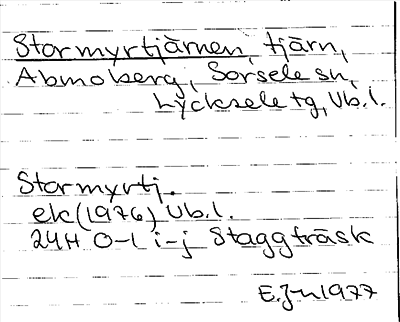 Stormyrtjärnen, tjärn,
Abmoberg, Sorsele sn,
Lycksele tg, Vb.l.
Stormyrtj.
ek (1976) Vb.l.
24H 0-1 i-j Staggträsk
E.Jn 1977